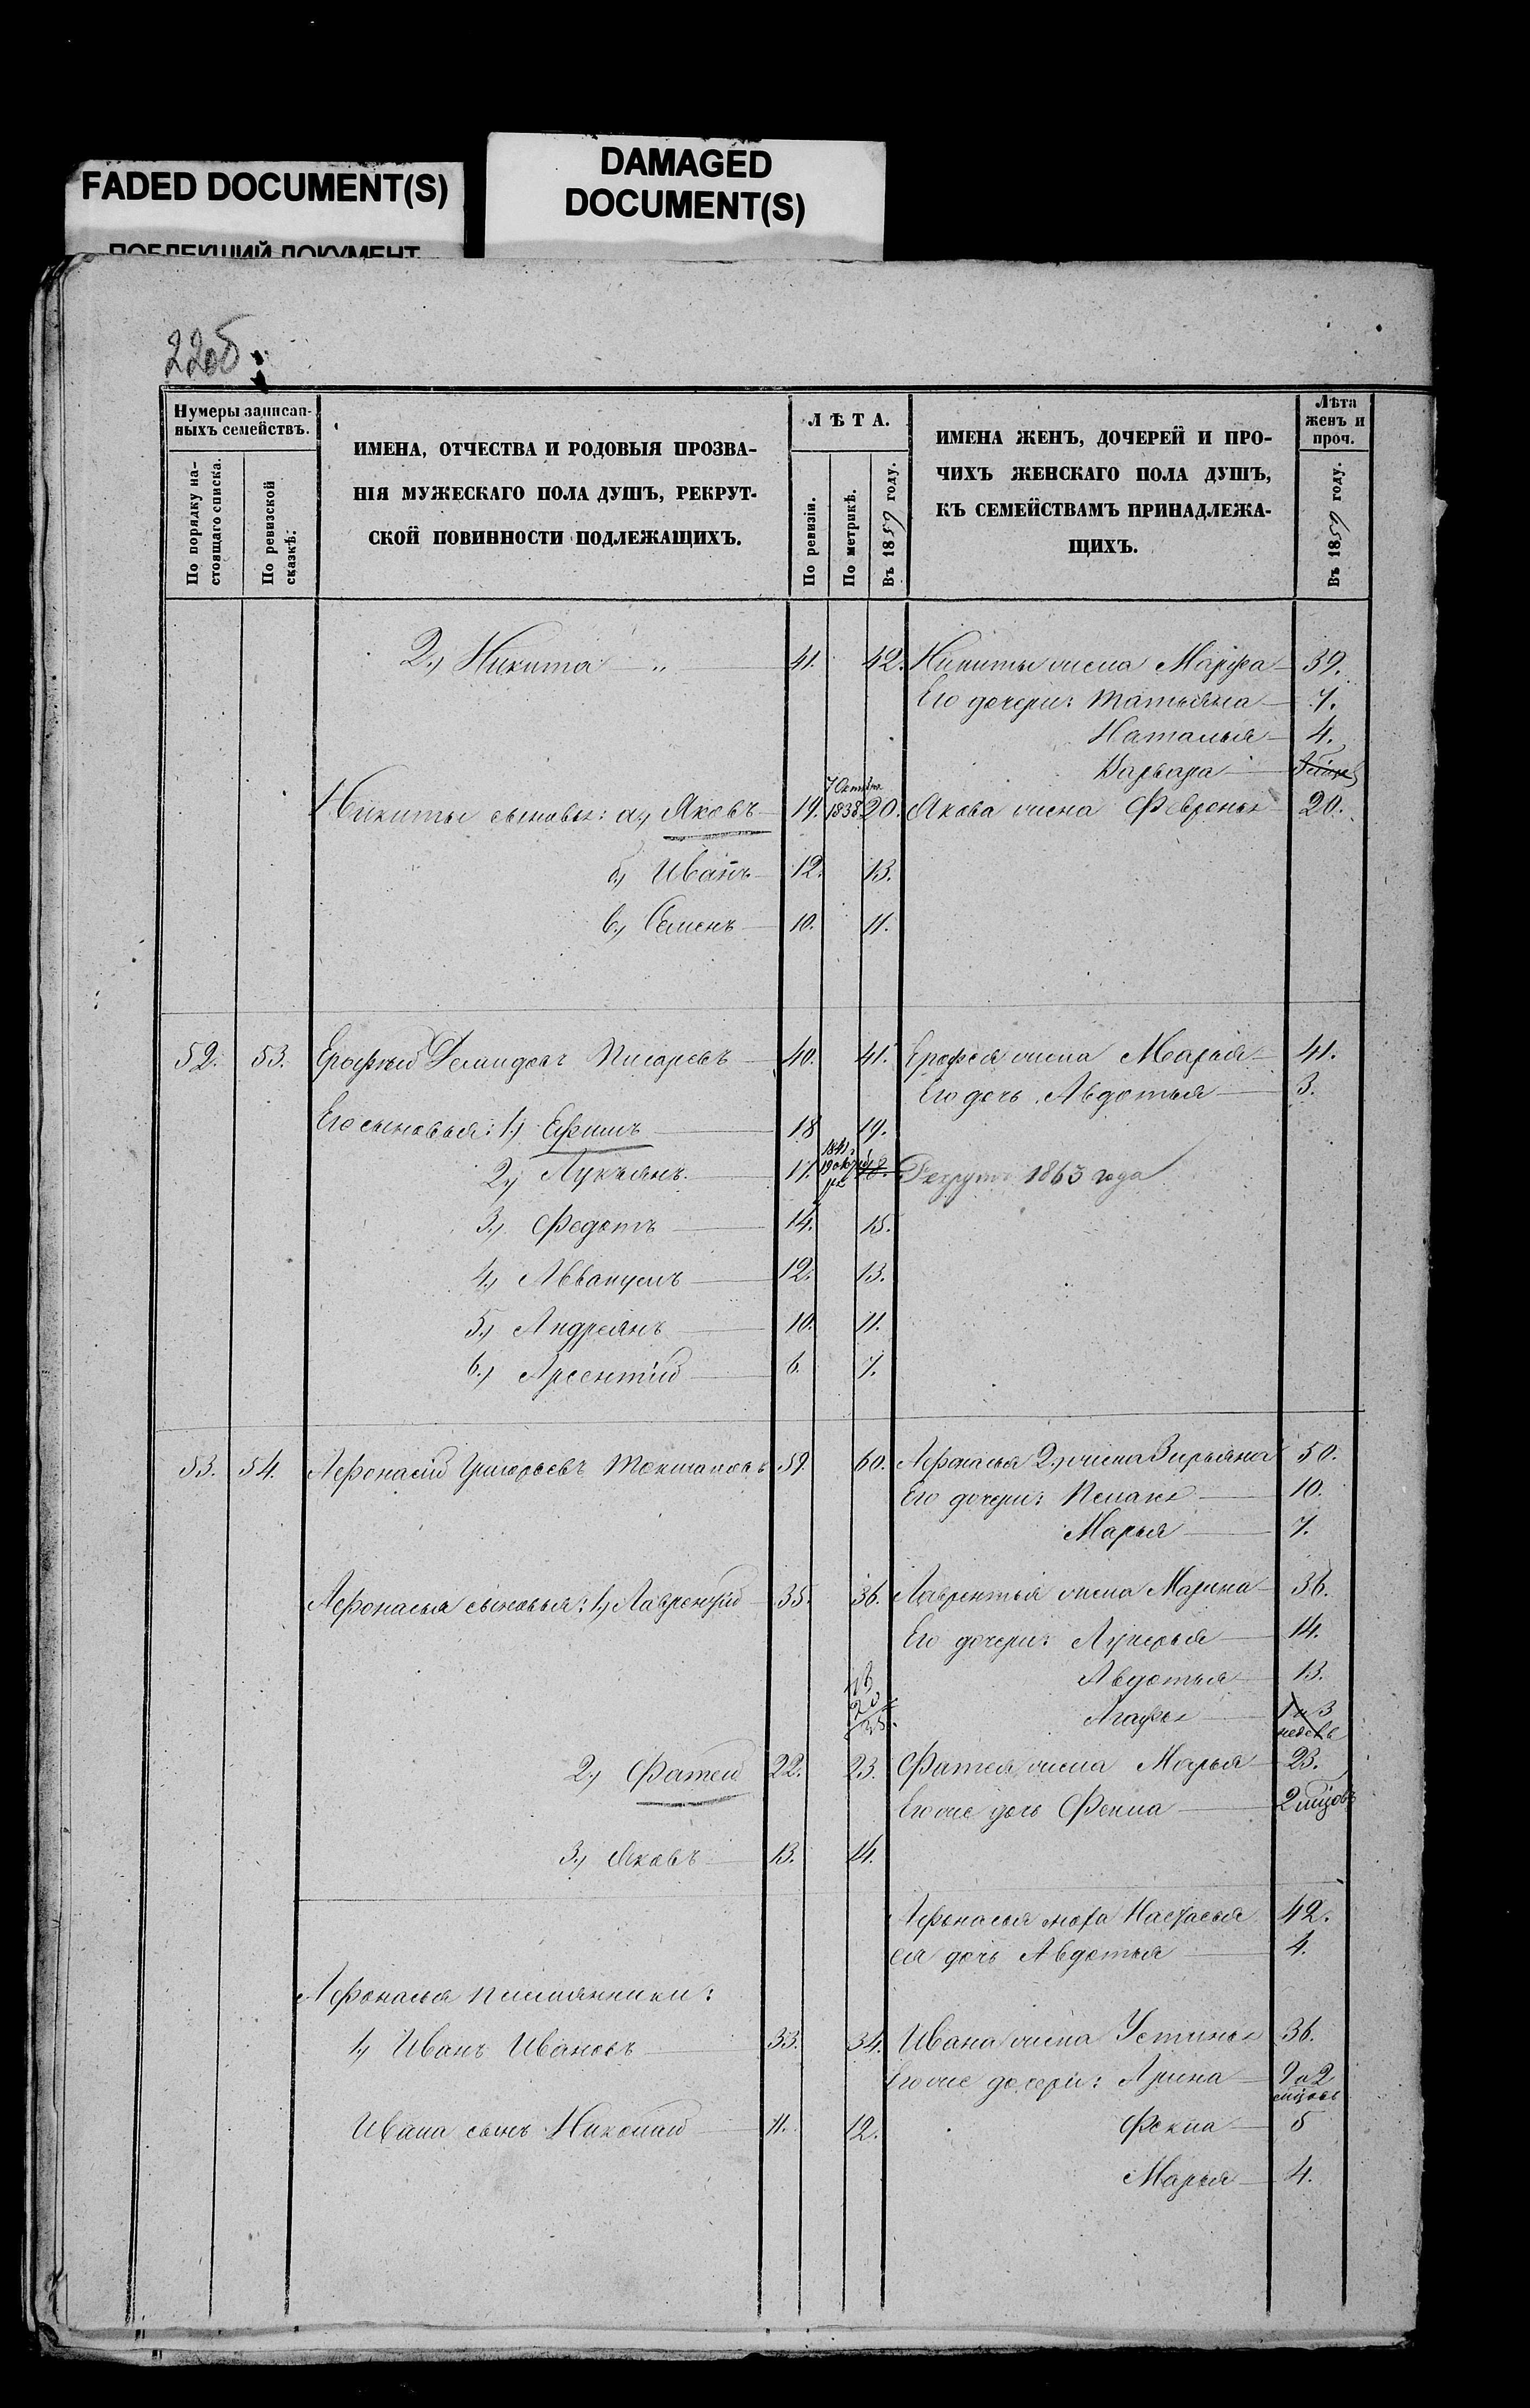 FADED DOCUMENT(S)
DAMAGED
DOCUMENT(S)
ПОБЛЕКШИЙ ДОКУМЕНТ
22об.
Нумеры записан-
ныхъ семействъ.
По порядку на-
стоящаго списка.
По ревизской
сказкѣ.
ИМЕНА, ОТЧЕСТВА И РОДОВЫЯ ПРОЗВА-
НІЯ МУЖЕСКАГО ПОЛА ДУШЪ, РЕКРУТ-
СКОЙ ПОВИННОСТИ ПОДЛЕЖАЩИХЪ.
ЛѢТА.
По ревизіи.
По метрикѣ.
Въ 1859 году.
ИМЕНА ЖЕНЪ, ДОЧЕРЕЙ И ПРО-
ЧИХЪ ЖЕНСКАГО ПОЛА ДУШЪ,
КЪ СЕМЕЙСТВАМЪ ПРИНАДЛЕЖА-
ЩИХЪ.
Лѣта
женъ и
проч.
Въ 1859 году.
2.) Никита " 41. 42. Никиты жена Марфа 39.
Его дочери: Татьяна 7.
Наталья 4.
Варвара
Никиты сыновья: а) Яковъ 19. 7 Октября 1838 20. Якова жена Февронья 20.
б) Иванъ 12. 13.
в) Семенъ 10. 11.
52. 53. Ерофѣй Демидовъ Писаревъ 40. 41. Ерофея жена Марья 41.
Его дочь Авдотья 3.
Его сыновья: 1.) Ефимъ 18 19.
2) Лукьянъ 17. 1841 19 18. Рекрутъ 1863 года
3.) Федотъ 14. 15.
4.) Аввакумъ 12. 13.
5.) Андреянъ 10. 11.
6.) Арсентій 6. 7.
53. 54. Афонасій Григорьевъ 59. 60. Афонасья 2) жена 50.
Его дочери: Пелагея 10.
Марья 7.
Афонасья сыновья: 1.) Лаврентій 35. 36. Лаврентья жена Марина 36.
Его дочери: Лукерья 14.
Авдотья 13.
Агафья 1 и 3 недель
2.) Фатей 22. 23. Фатея жена Марья 23.
Его же дочь Фекла 2 мѣсяцовъ
3.) Яковъ 13. 14.
Афонасья сноха Настасья 42.
ея дочь Авдотья 4.
Афонасья племянники:
1.) Иванъ Ивановъ 33. 34. Ивана жена Устинья 36.
Его же дочери: Арина 9 и 2
Ивана сынъ Николай 11. 12. Фекла 5
Марья 4.